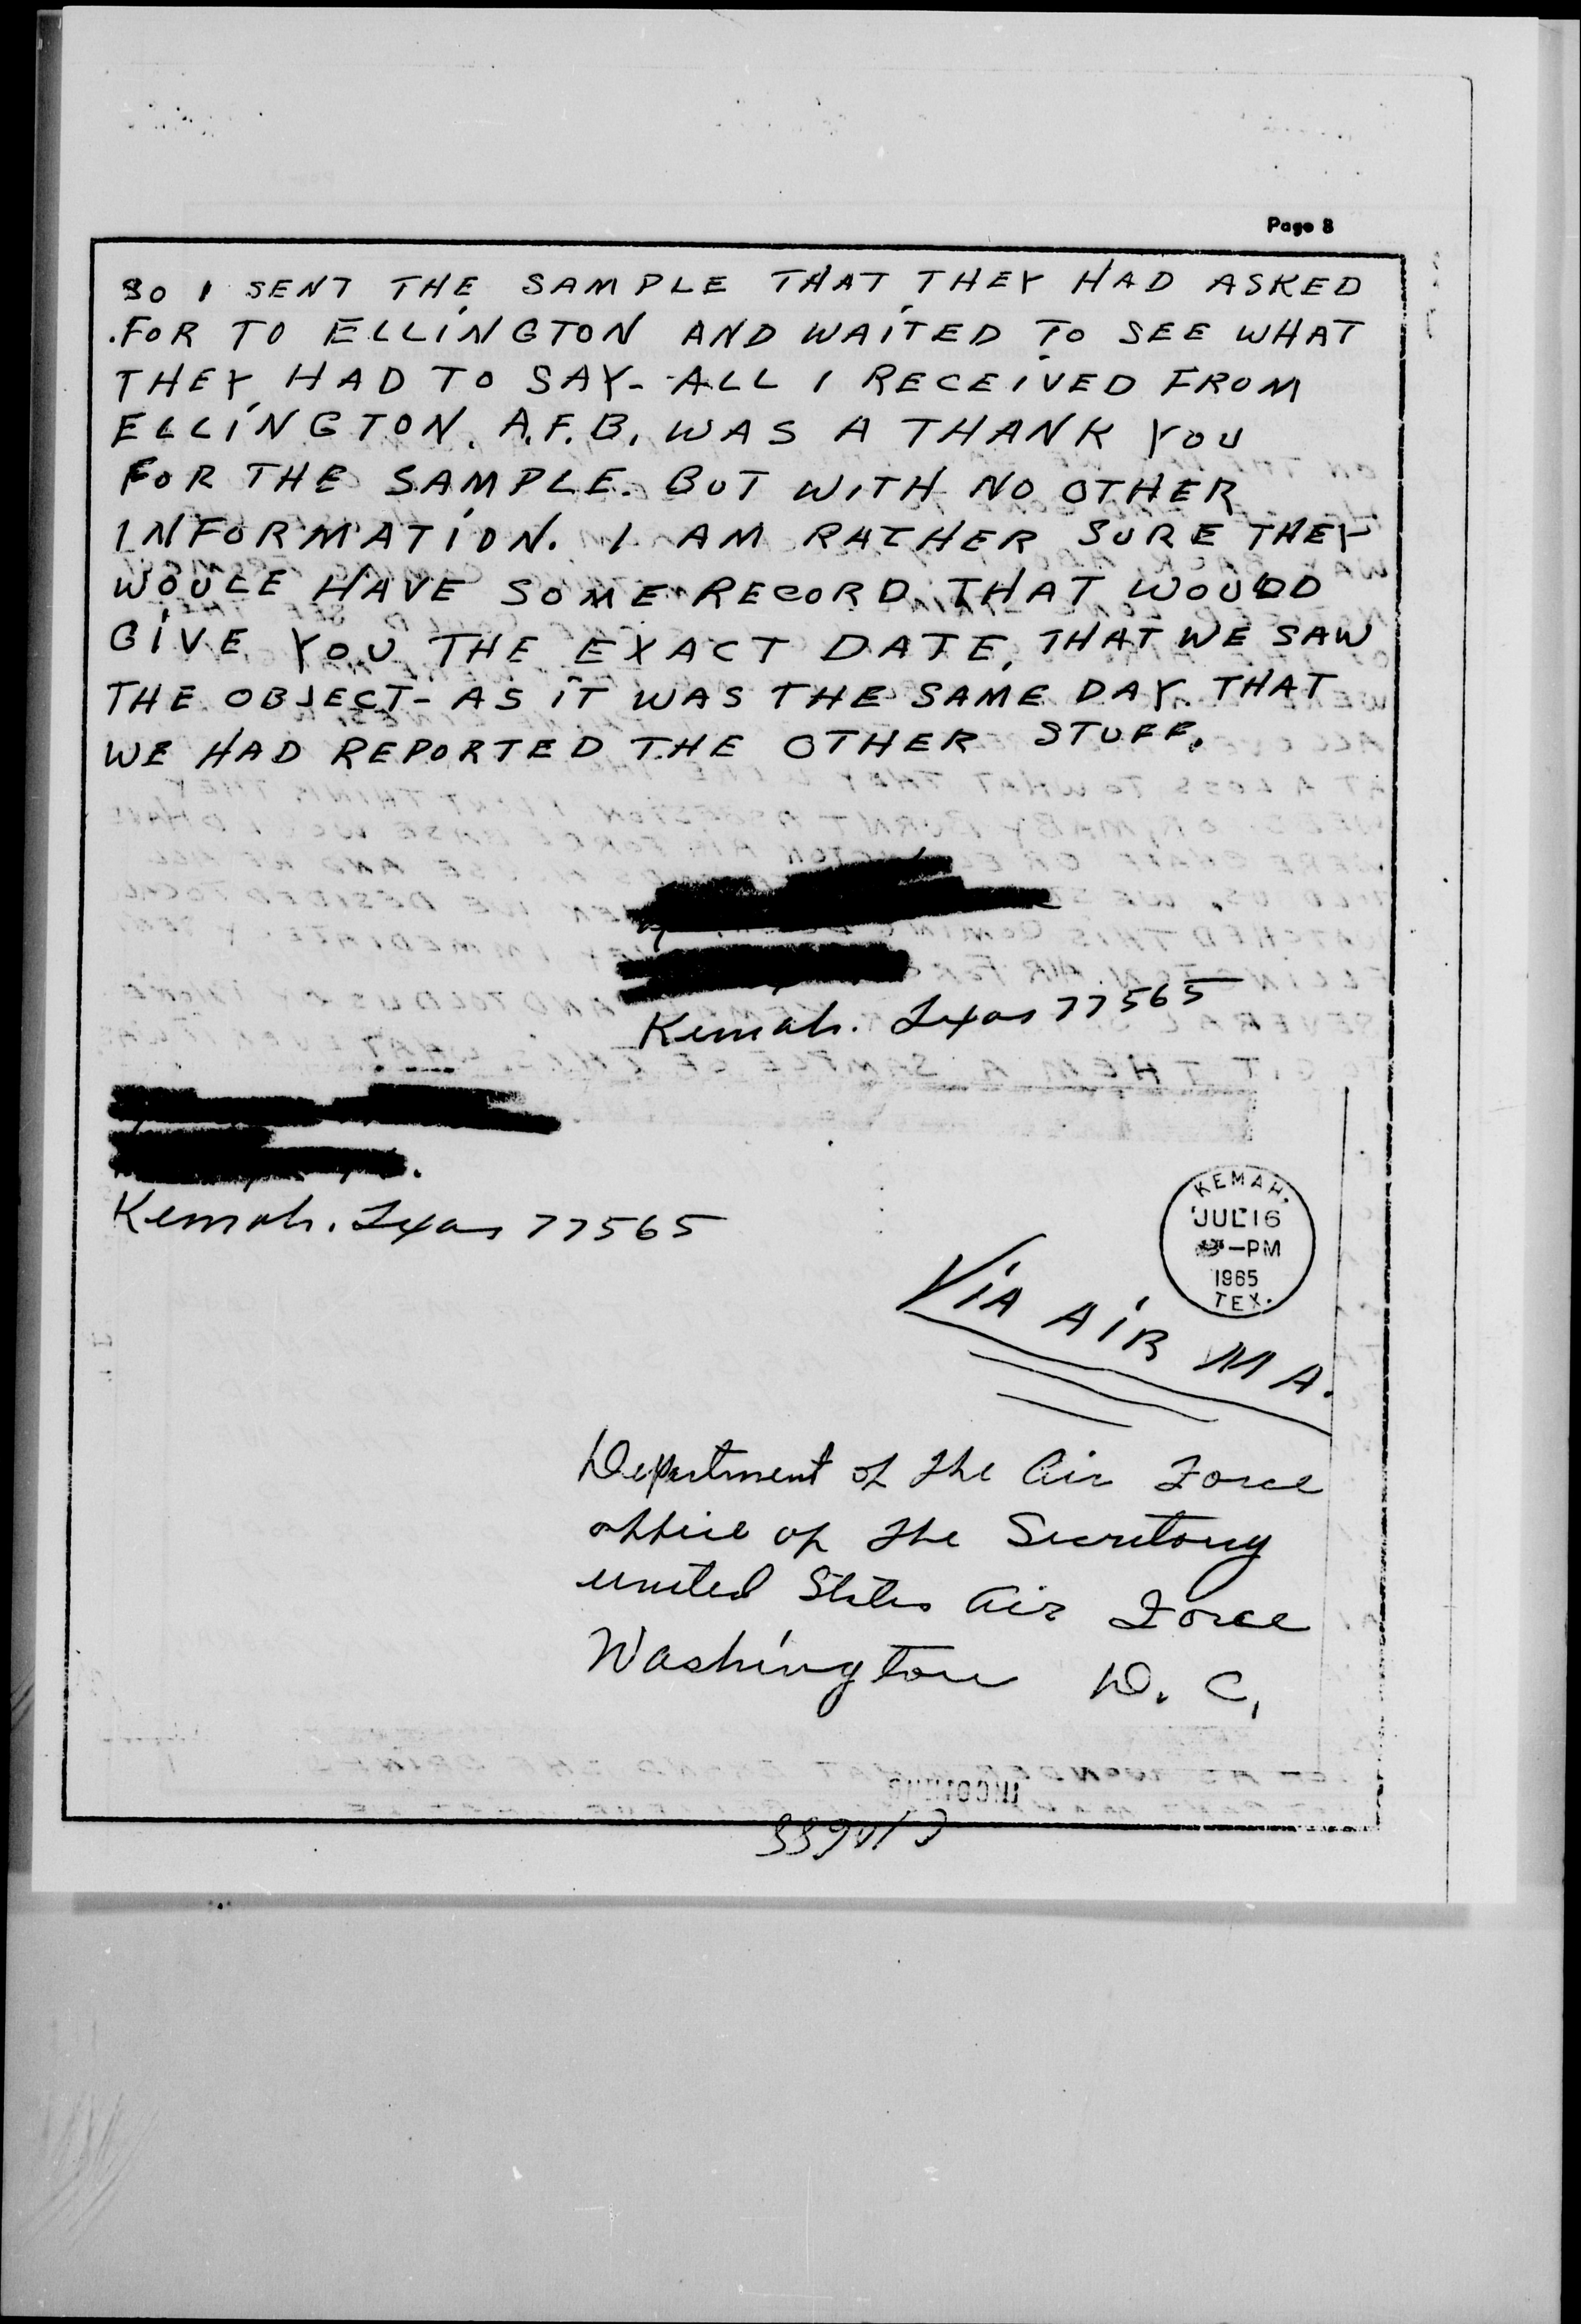 Page 8
SO I SENT THE SAMPLE THAT THEY HAD ASKED
FOR TO ELLINGTON AND WAITED TO SEE WHAT
THEY HAD TO SAY- ALL I RECEIVED FROM
ELLINGTON. A.F.B. WAS A THANK YOU
FOR THE SAMPLE. BUT WITH NO OTHER
INFORMATION. I AM RATHER SURE THEY
WOULE HAVE SOME RECORD THAT WOUDD
GIVE YOU THE EXACT DATE, THAT WE SAW
THE OBJECT- AS IT WAS THE SAME DAY THAT
WE HAD REPORTED THE OTHER STUFF.
Kemah. Texas 77565
Kemah. Texas 77565
KEMAH.
JUL 16
-PM
1965
TEX.
VIA AIR MA.
Department of the Air Force
office of the Secretary
united States Air Force
Washington D. C.
INCOMING